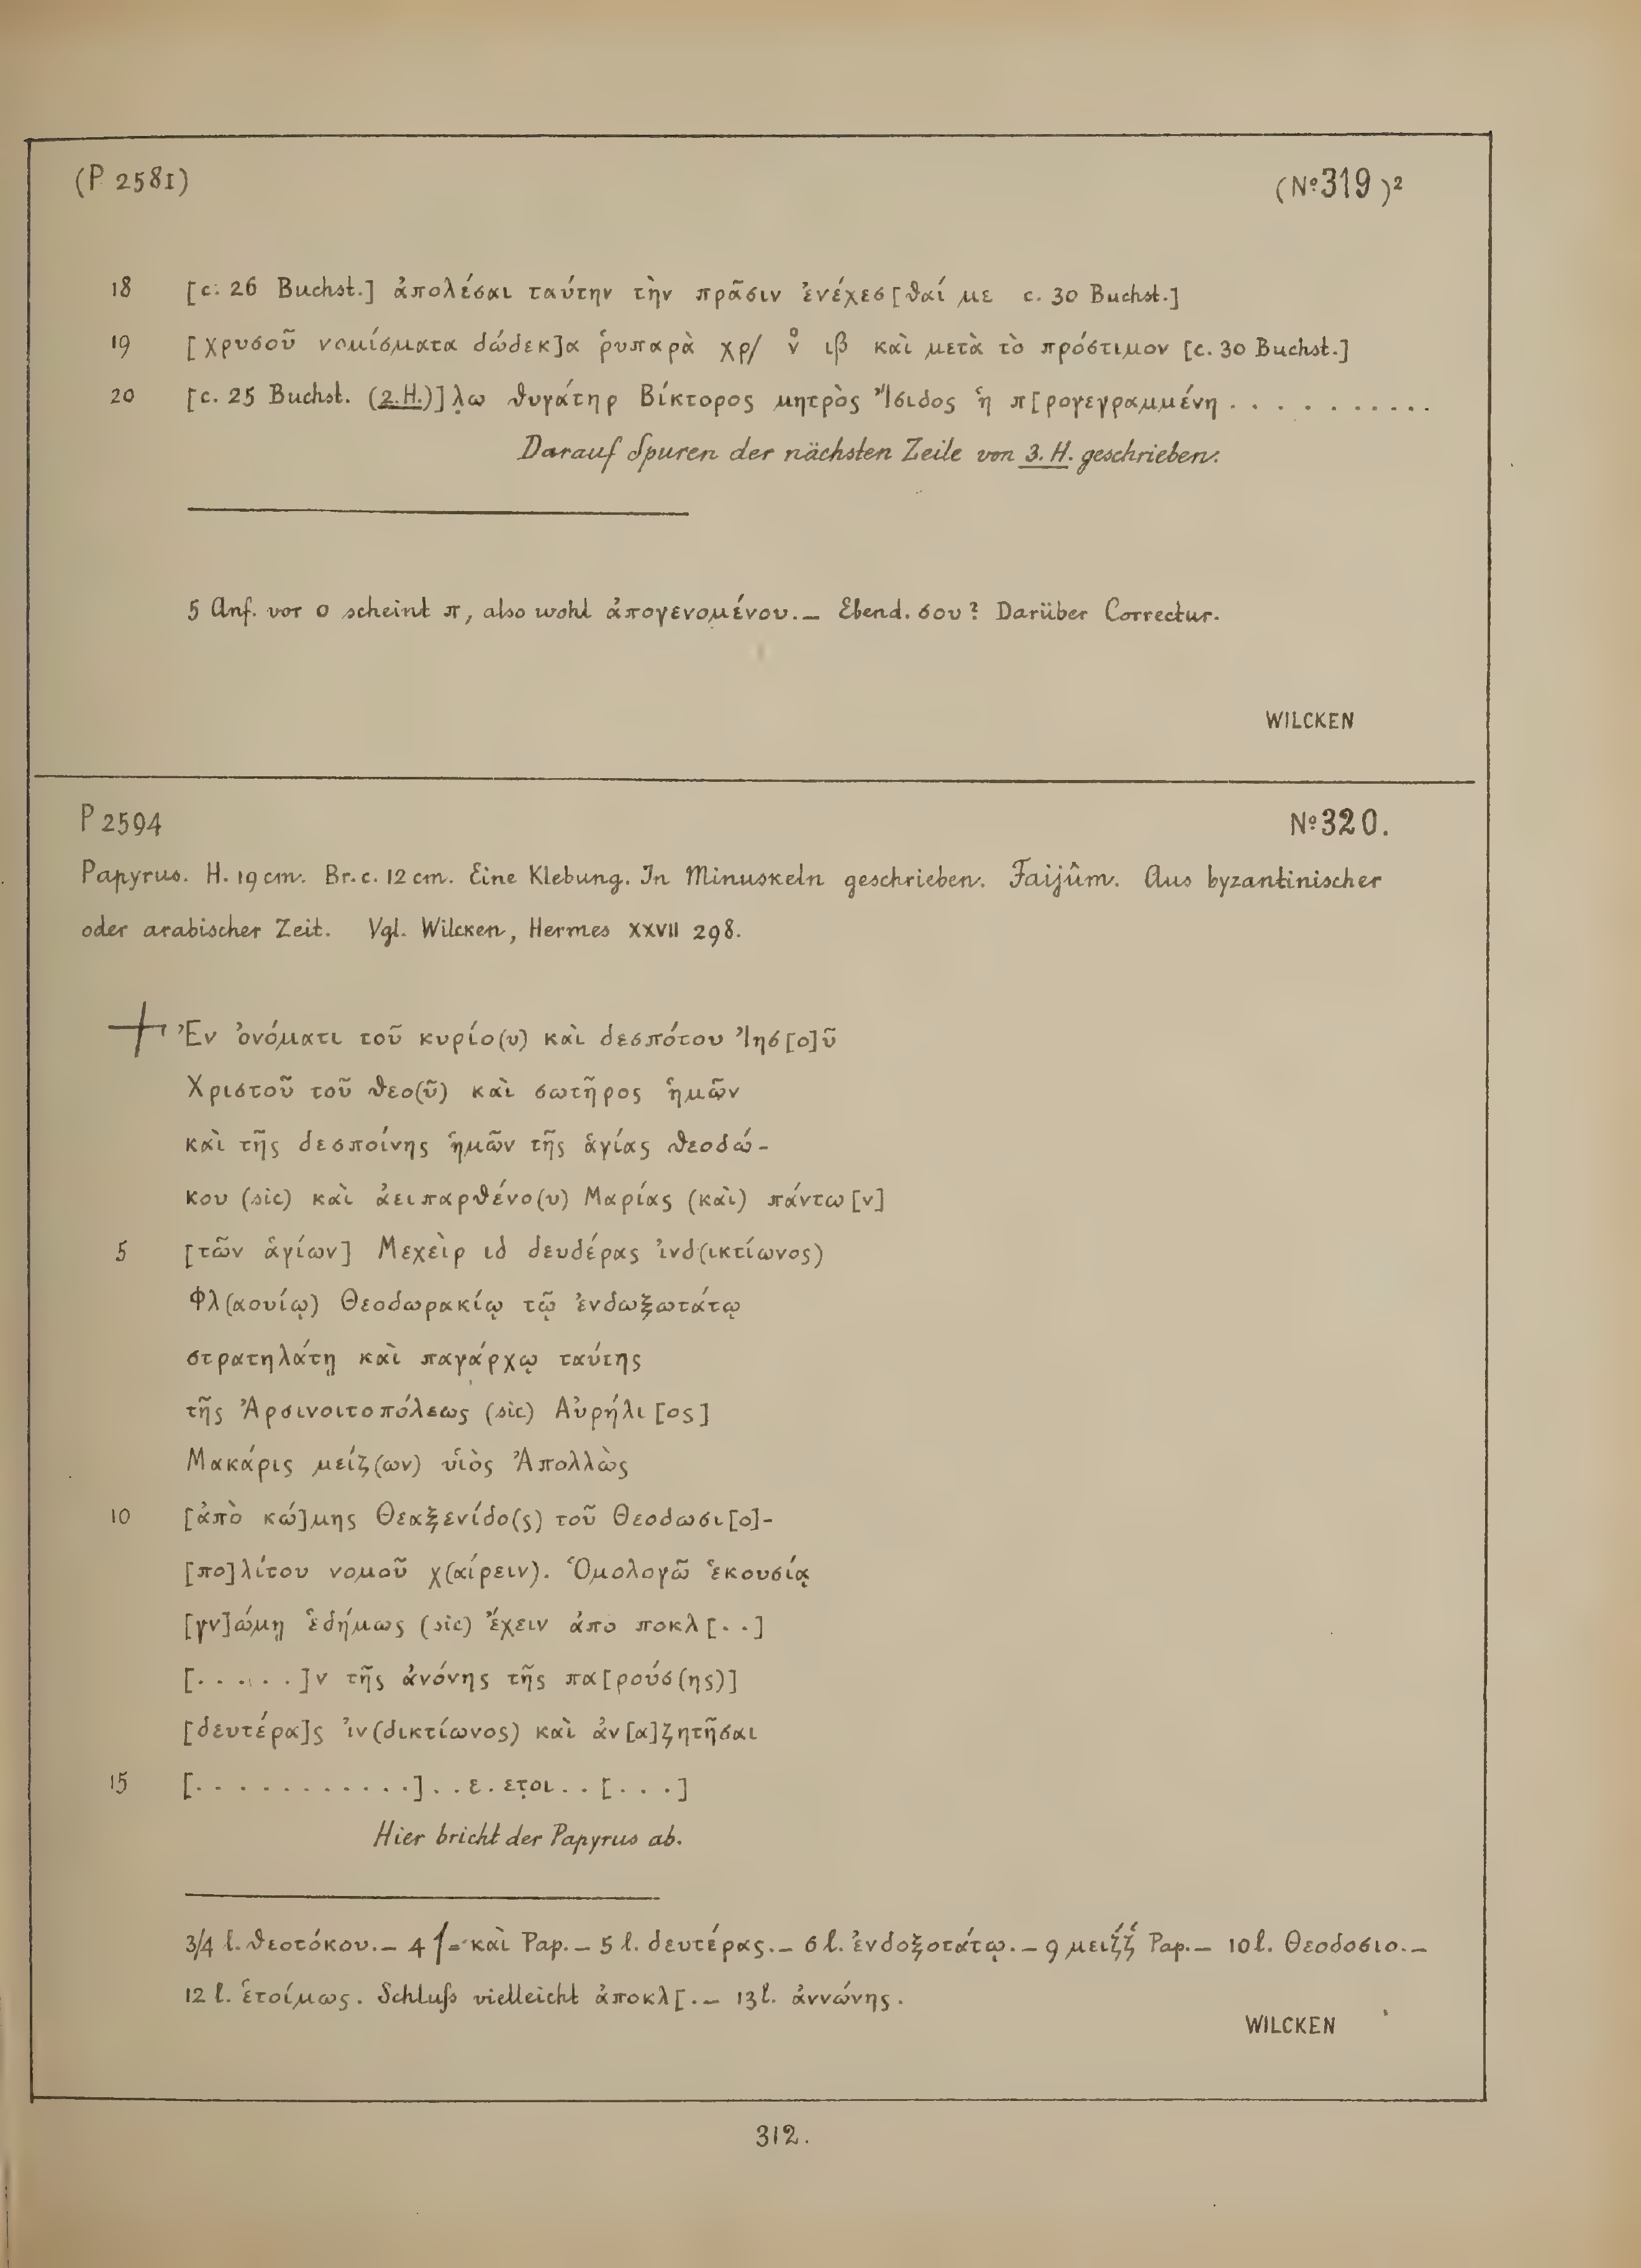 (P 2581) (Nº 319)²
18 [c. 26 Buchst.] ἀπολέσαι ταύτην τὴν πρᾶσιν ἐνέχεσ[θαί με c. 30 Buchst.]
19 [χρυσοῦ νομίσματα δώδεκ]α ῥυπαρὰ χρ/ ν̊ ιβ καὶ μετὰ τὸ πρόστιμον [c. 30 Buchst.]
20 [c. 25 Buchst. (2. H.)]λ̣ω θυγάτηρ Βίκτορος μητρὸς Ἴσιδος ἡ π[ρογεγραμμένη . . . . . . . . . .
Darauf Spuren der nächsten Zeile von 3. H. geschrieben.
5 Anf. vor ο scheint π, also wohl ἀπογενομένου. – Ebend. σου? Darüber Correctur.
WILCKEN
P 2594 Nº 320.
Papyrus. H. 19 cm. Br. c. 12 cm. Eine Klebung. In Minuskeln geschrieben. Faijûm. Aus byzantinischer
oder arabischer Zeit. Vgl. Wilcken, Hermes XXVII 298.
Ἐν ὀνόματι τοῦ κυρίο(υ) καὶ δεσπότου Ἰησ[ο]ῦ
Χριστοῦ τοῦ θεο(ῦ) καὶ σωτῆρος ἡμῶν
καὶ τῆς δεσποίνης ἡμῶν τῆς ἁγίας θεοδώ-
κου (sic) καὶ ἀειπαρθένο(υ) Μαρίας (καὶ) πάντω[ν]
5 [τῶν ἁγίων] Μεχεὶρ ιδ δευδέρας ἰνδ(ικτίωνος)
Φλ(αουίῳ) Θεοδωρακίῳ τῷ ἐνδωξωτάτῳ
στρατηλάτῃ καὶ παγάρχῳ ταύτης
τῆς Ἀρσινοιτοπόλεως (sic) Αὐρήλι[ος]
Μακάρις μείζ(ων) υἱὸς Ἀπολλὼς
10 [ἀπὸ κώ]μης Θεαξενίδο(ς) τοῦ Θεοδωσι[ο]-
[πο]λίτου νομοῦ χ(αίρειν). Ὁμολογῶ ἑκουσίᾳ
[γν]ώμῃ ἑδήμως (sic) ἔχειν ἀπο ποκλ[. .]
[. . . . . .]ν τῆς ἀνόνης τῆς πα[ρούσ(ης)]
[δευτέρα]ς ἰν(δικτίωνος) καὶ ἀν[α]ζητῆσαι
15 [. . . . . . . . . . . .] . . ε . ετ̣οι . . [. . . .]
Hier bricht der Papyrus ab.
3/4 l. θεοτόκου. – 4 ʃ = καὶ Pap. – 5 l. δευτέρας. – 6 l. ἐνδοξοτάτῳ. – 9 μειζζ Pap. – 10 l. Θεοδοσιο. –
12 l. ἑτοίμως. Schluß vielleicht ἀποκλ[. – 13 l. ἀννώνης.
WILCKEN
312.